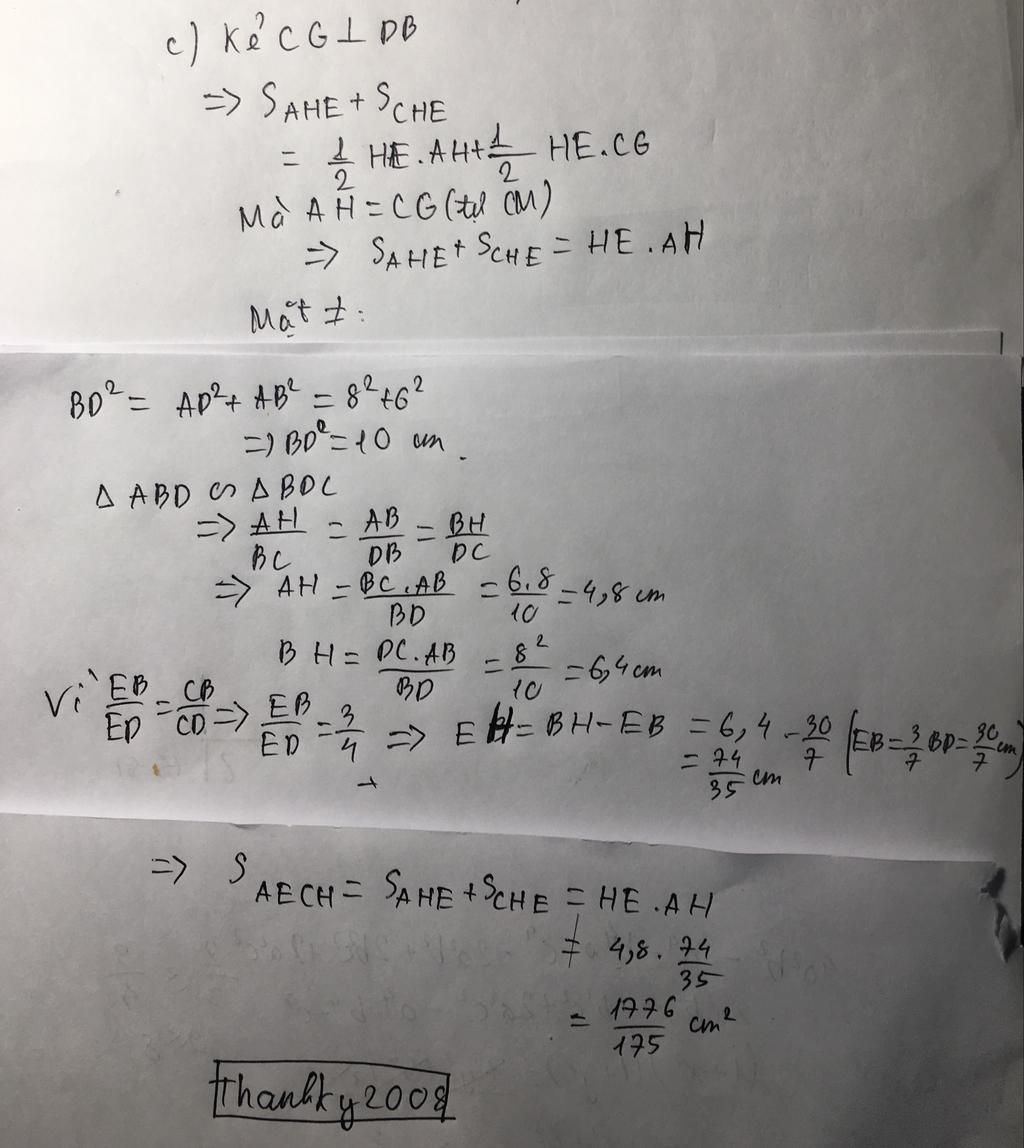 c) Kẻ CG ⊥ DB
=> S AHE + S CHE
= 1/2 HE . AH + 1/2 HE . CG
Mà AH = CG (tự CM)
=> S AHE + S CHE = HE . AH
Mặt ≠ :
BD² = AD² + AB² = 8² + 6²
=> BD² = 10 cm.
Δ ABD ∽ Δ BDC
=> AH/BC = AB/DB = BH/DC
=> AH = BC.AB/BD = 6.8/10 = 4,8 cm
BH = DC.AB/BD = 8²/10 = 6,4 cm
Vì EB/ED = CB/CD => EB/ED = 3/4 => EH = BH - EB = 6,4 - 30/7 (EB = 3/7 BD = 30/7 cm)
= 74/35 cm
=> S AECH = S AHE + S CHE = HE . AH
= 4,8 . 74/35
= 1776/175 cm²
Thankky2008